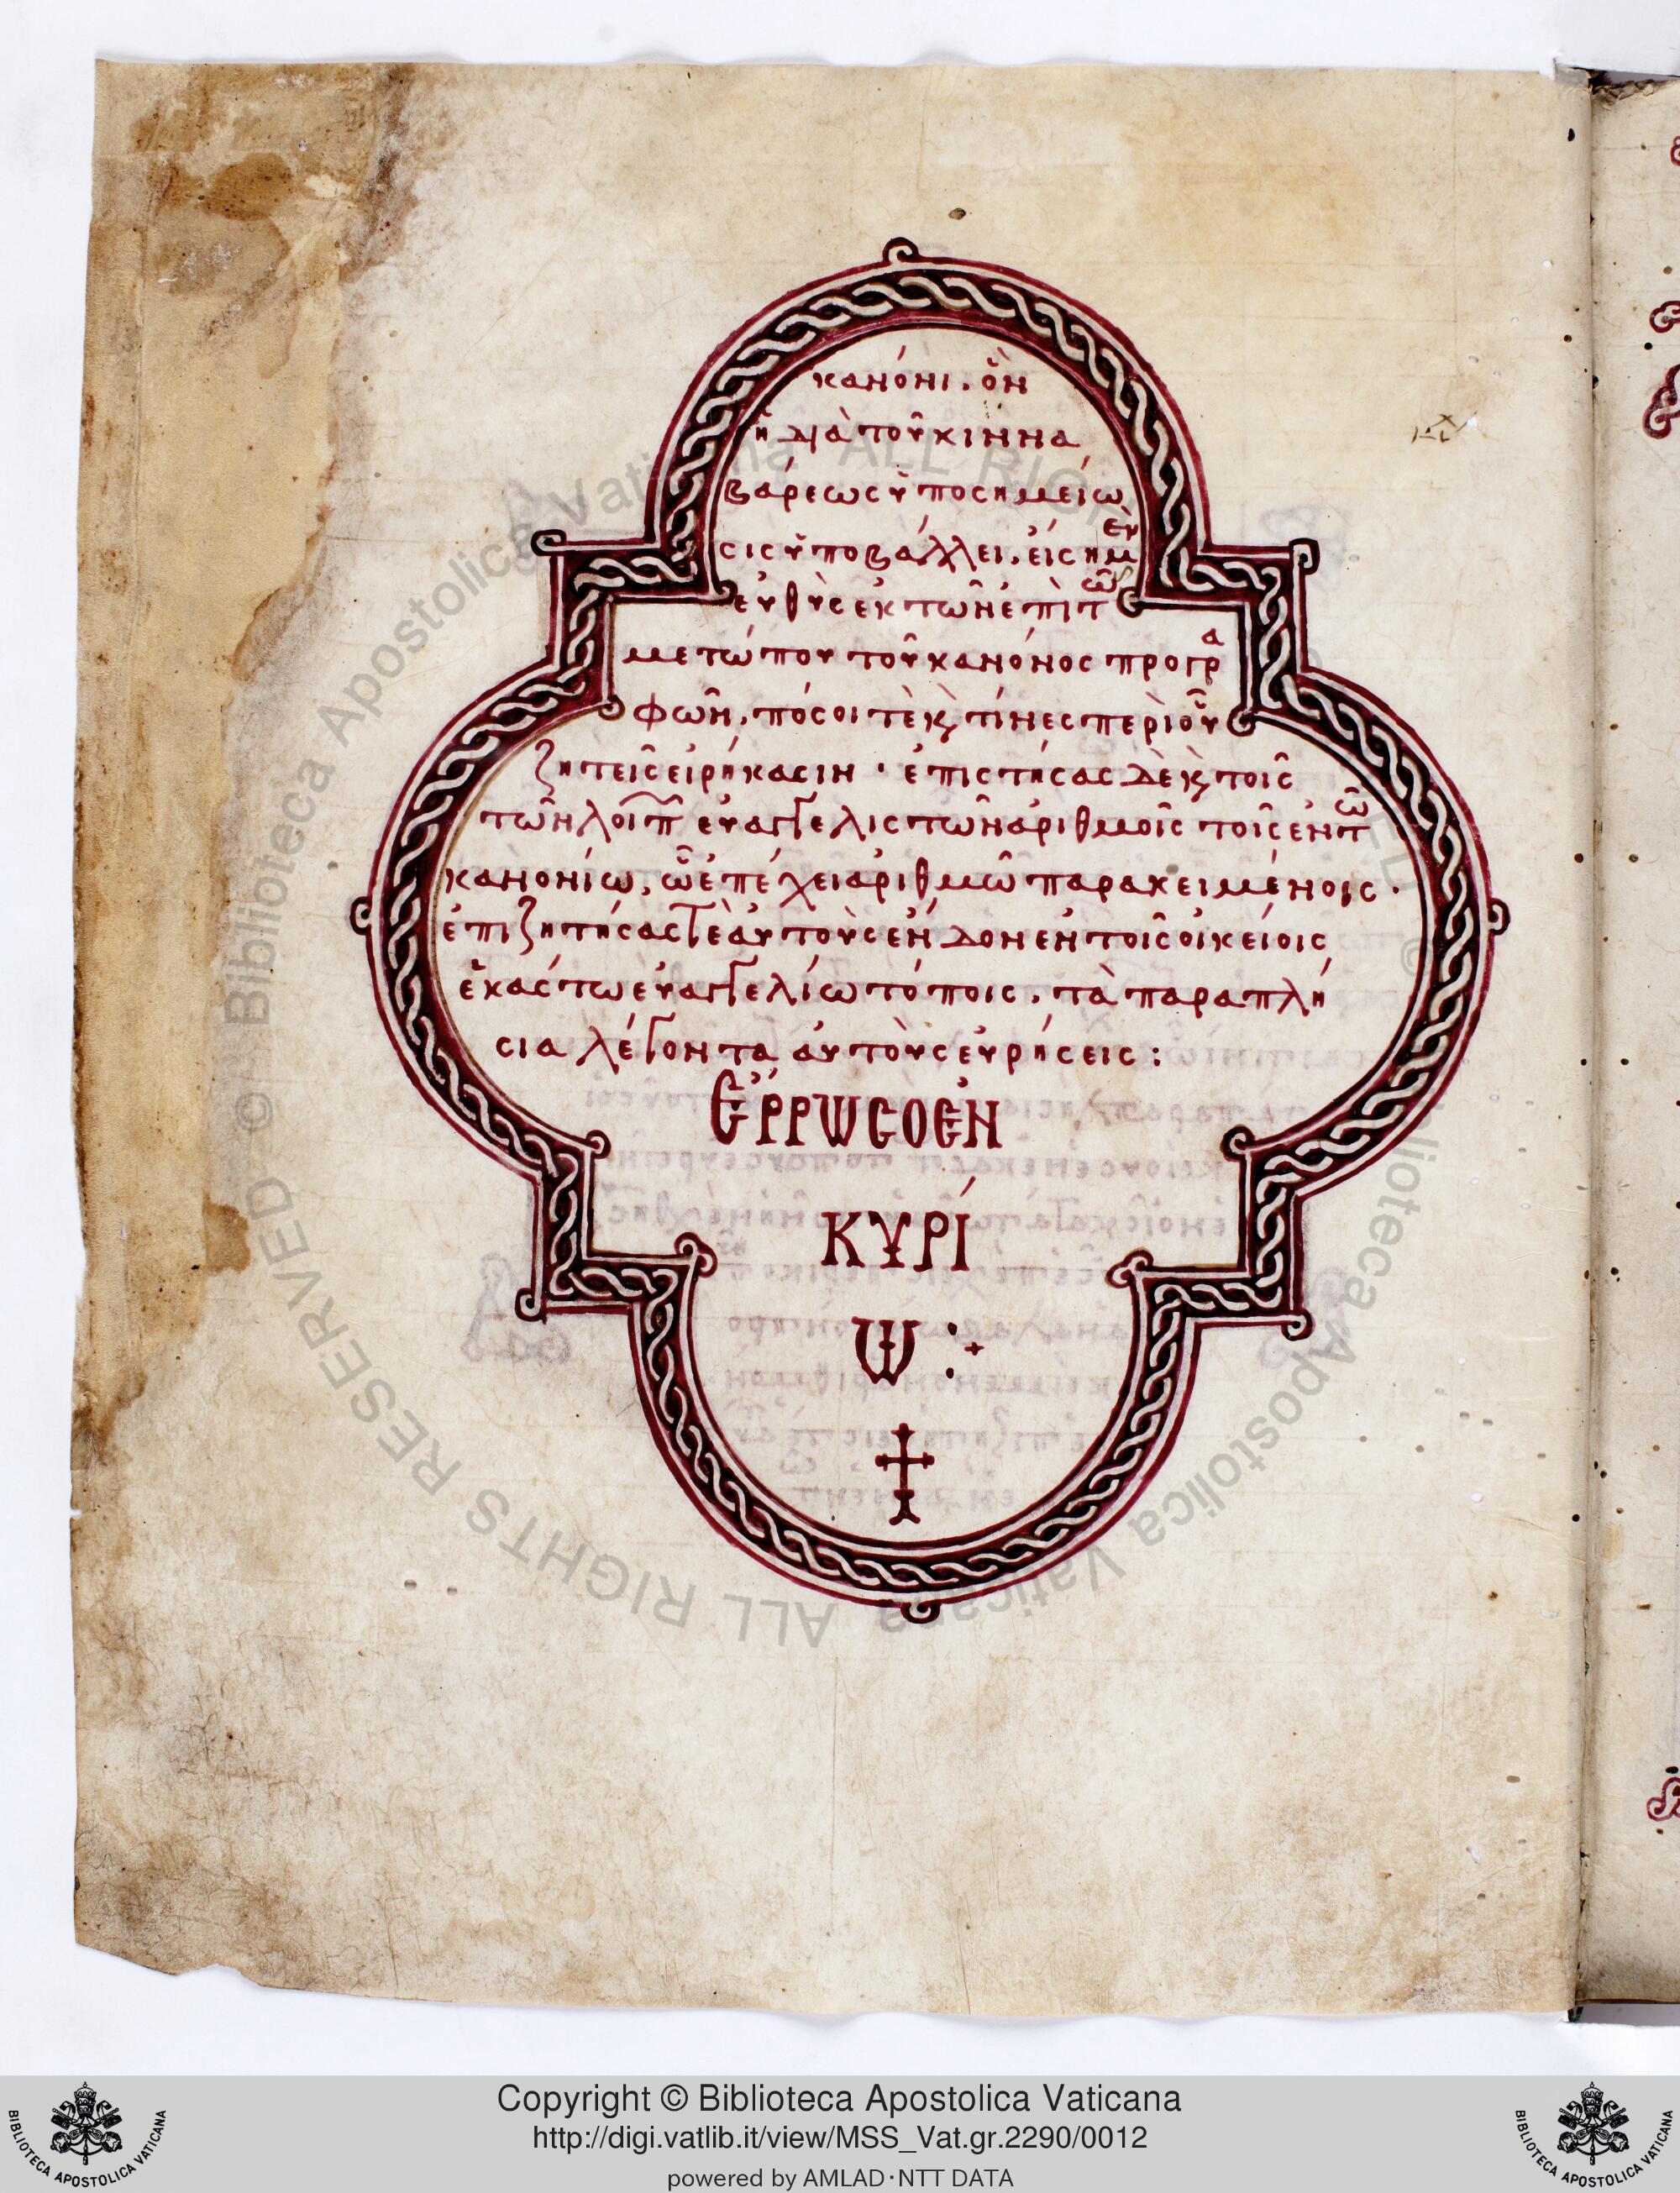 κανόνι. ὃν
ἡ διὰ τοῦ κιννα
βάρεως ὑποσημείω
σις ὑποβάλλει. εἴσῃ μὲν
εὐθὺς ἐκ τῶν ἐπὶ τῶ
μετώπου τοῦ κανόνος προγρα
φῶν, πόσοι τὲ κ τίνες περὶ οὗ
ζητεῖς εἰρήκασιν · ἐπιστήσας δὲ κ τοῖς
τῶν λοιπ εὐαγγελίστων ἀριθμοῖς τοῖς ἐν τῶ
κανονίω, ὧ ἐπέχει ἀριθμῶ παρακειμένοις.
ἐπιζητήσας γε αὐτοὺς ἔνδον ἐν τοῖς οἰκείοις
ἑκάστω εὐαγγελίω τόποις, τὰ παραπλή
σια λέγοντα αὐτοὺς εὑρήσεις :
ΕΡΡΩΣΟ ΕΝ
ΚΥΡΙ
Ω
Copyright © Biblioteca Apostolica Vaticana
http://digi.vatlib.it/view/MSS_Vat.gr.2290/0012
powered by AMLAD·NTT DATA
BIBLIOTECA APOSTOLICA VATICANA
BIBLIOTECA APOSTOLICA VATICANA
© Biblioteca Apostolica Vaticana ALL RIGHTS RESERVED
© Biblioteca Apostolica Vaticana ALL RIGHTS RESERVED